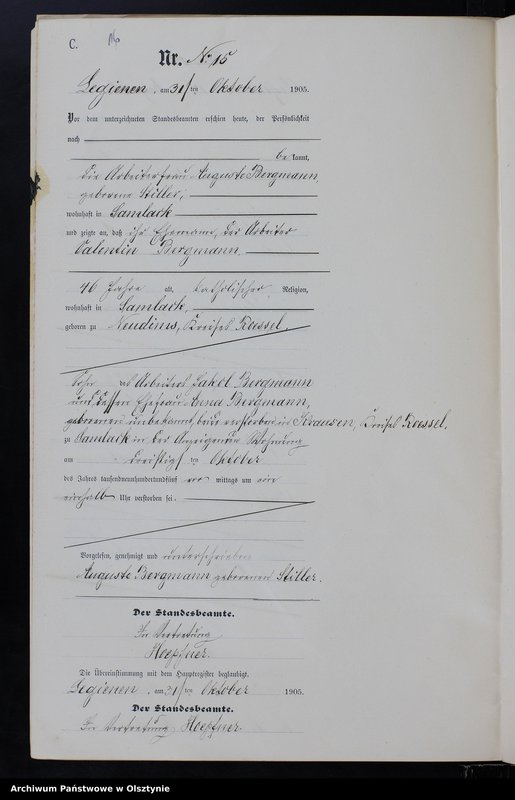 C.
Nr. No 15
Legienen, am 31sten Oktober 1905.
Vor dem unterzeichneten Standesbeamten erschien heute, der Persönlichkeit
nach
be kannt,
die Arbeiterfrau Auguste Bergmann
geborene Stiller,
wohnhaft in Samlack
und zeigte an, daß ihr Ehemann, der Arbeiter
Valentin Bergmann,
46 Jahre alt, katholischer Religion,
wohnhaft in Samlack,
geboren zu Neudims, Kreises Roessel,
Sohn des Arbeiters Jakob Bergmann
und dessen Ehefrau Anna Bergmann,
geborenen unbekannt, beide verstorben in Krausen, Kreises Roessel,
zu Samlack in der Anzeigenden Wohnung
am dreißigsten Oktober
des Jahres tausendneunhundertundfünf vor mittags um
Uhr verstorben sei.
Vorgelesen, genehmigt und unterschrieben
Auguste Bergmann geborenen Stiller.
Der Standesbeamte.
In Vertretung
Hoepfner.
Die Übereinstimmung mit dem Hauptregister beglaubigt.
Legienen, am 31sten Oktober 1905.
Der Standesbeamte.
In Vertretung Hoepfner.
Archiwum Państwowe w Olsztynie